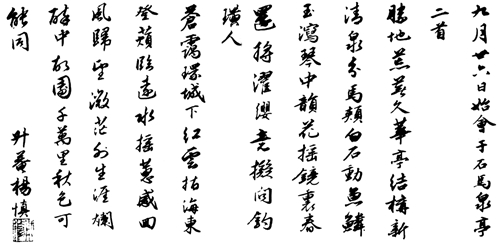 九月廿六日始會于石馬泉亭
二首
勝地荒蓁久華亭結構新
清泉分馬頰白石動魚鱗
玉瀉琴中韻花搖鏡裏春
還將濯纓意擬問釣
璜人
蒼靄環城下紅雲拍海東
登蘋臨遠水搖蕙感回
風歸望微茫外生涯爛
醉中故園千萬里秋色可
能同
升菴楊慎